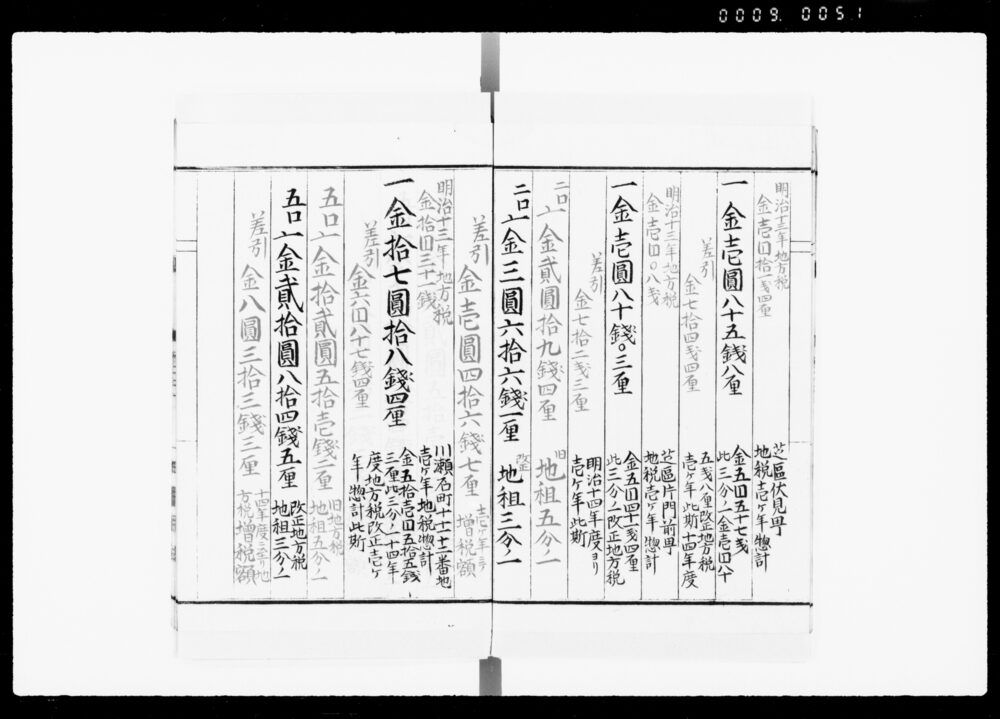 0009. 0051
明治十三年地方税
金壱円拾一銭四厘
一金壱圓八十五銭八厘
芝區伏見町
地税壱ヶ年惣計
金五円五十七銭
此三分ノ一金壱円八十
五銭八厘改正地方税
壱ヶ年此斯十四年度
差引 金七拾四銭四厘
明治十三年地方税
金壱円〇八銭
一金壱圓八十銭〇三厘
芝區片門前町
地税壱ヶ年惣計
金五円四十一銭四厘
此三分ノ一改正地方税
明治十四年度より
壱ヶ年此斯
差引 金七拾二銭三厘
二口〆金貳圓拾九銭四厘 旧地租五分ノ一
二口〆金三圓六拾六銭一厘 改正地租三分ノ一
差引金壱圓四拾六銭七厘 壱ヶ年ニ増税額
明治十三年地方税
金拾円三十一銭
一金拾七圓拾八銭四厘
川瀬石町十一十二番地
壱ヶ年地税惣計
金五拾壱円五拾五銭
三厘此三分ノ一十四年
度地方税改正壱ヶ
年惣計此斯
差引金六円八十七銭四厘
五口〆金拾貳圓五拾壱銭二厘 旧地方税地租五分ノ一
五口〆金貳拾圓八拾四銭五厘 改正地方税地租三分ノ一
差引 金八圓三拾三銭三厘 十四年度ニ至り地方税増税額